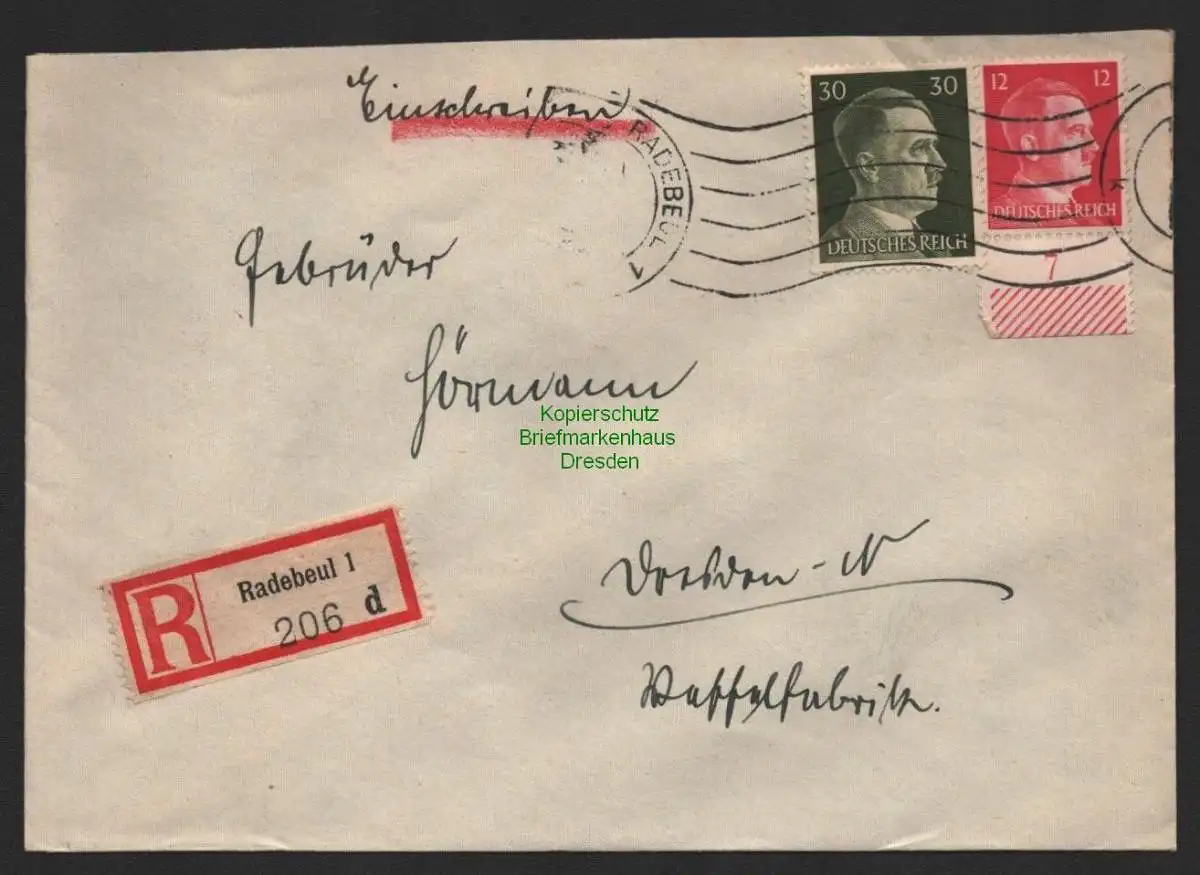 Einschreiben
RADEBEUL 1
30 30
DEUTSCHES REICH
12 12
DEUTSCHES REICH
7
Gebrüder
Hörmann
Kopierschutz
Briefmarkenhaus
Dresden
R Radebeul 1
206 d
Dresden-N
Waffelfabrik.